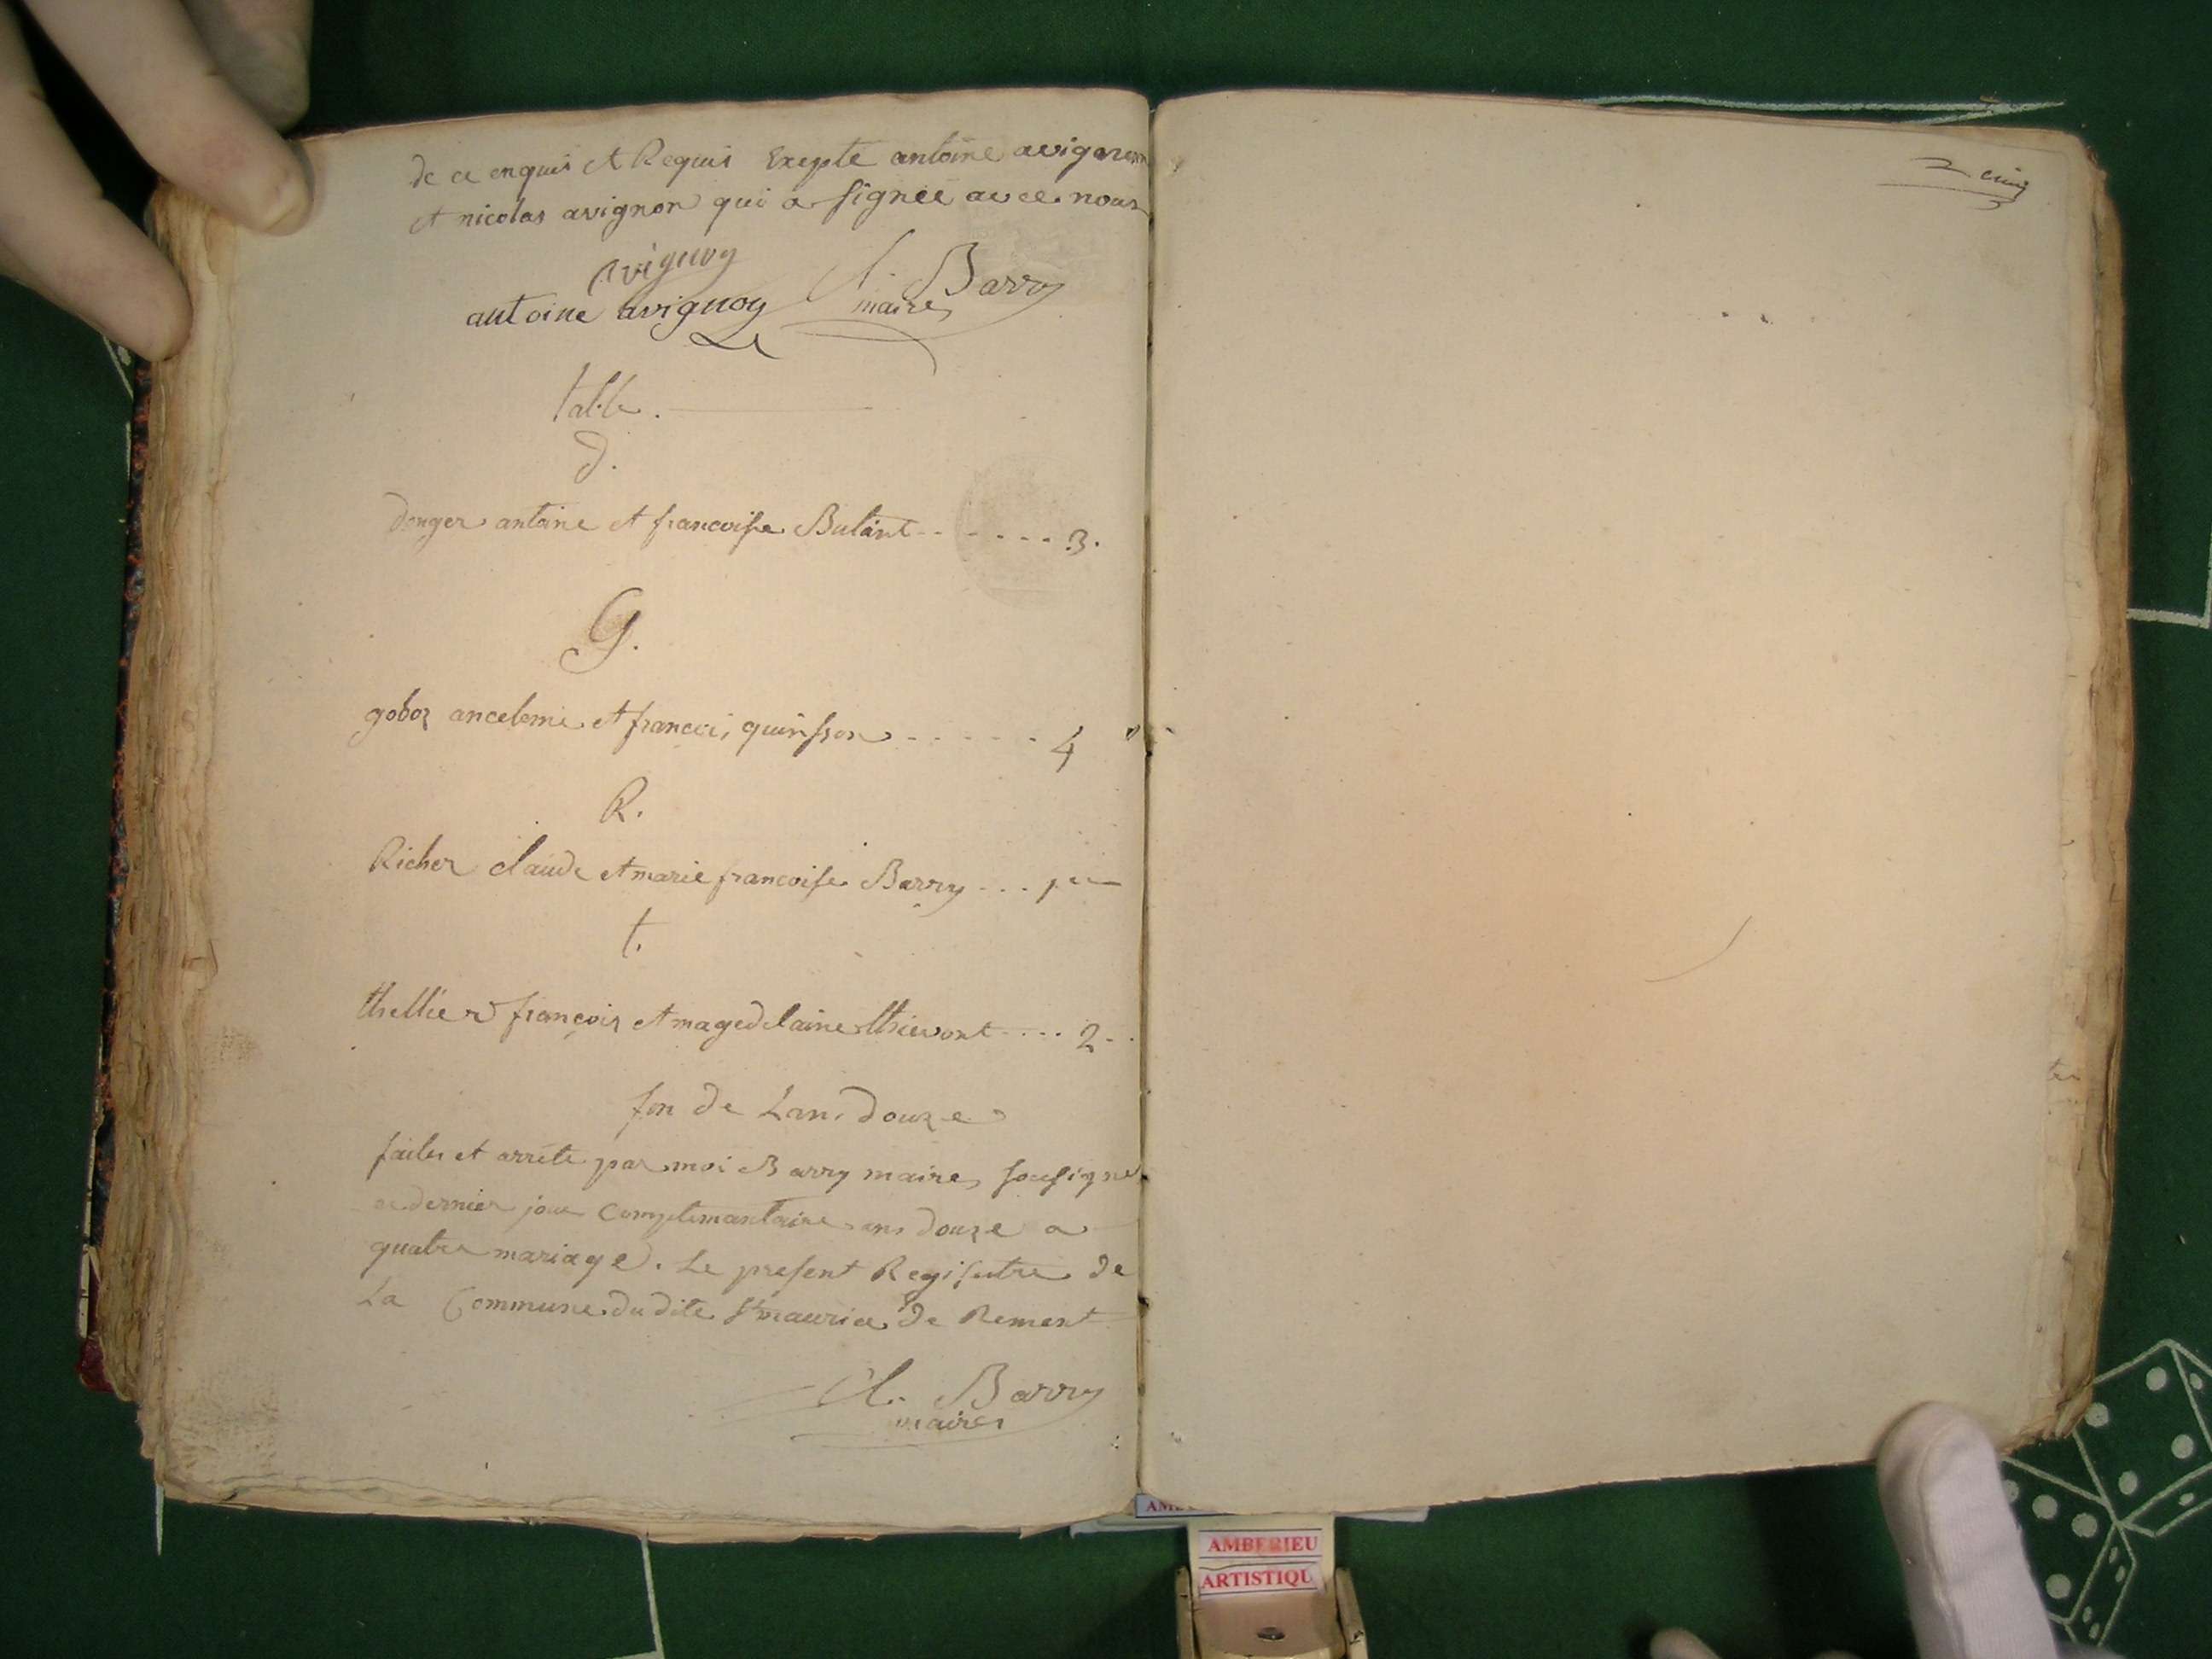 de ce enquis et Requis Exepte antoine avignon
et nicolas avignon qui a signée avec nous
avignon
antoine avignon
Cl. Barry
maire
table.
d.
donger antoine et francoise Butant - - - - - - - 3.
G.
goboz anceleme et francoi, quinsson - - - - - - 4
R.
Richer claude et marie francoise Barry - - - 1er
t.
thellier françois et magedelaine thievont - - - - 2 - -
fin de Lans douze
faites et arrête par moi Barry maire sousigné
ce dernier jour Complemantaire ans douze a
quatre mariage. Le present Registre de
La Commune du dite St maurice de Remens
Cl. Barry
maire
cinq
AMBERIEU
ARTISTIQU